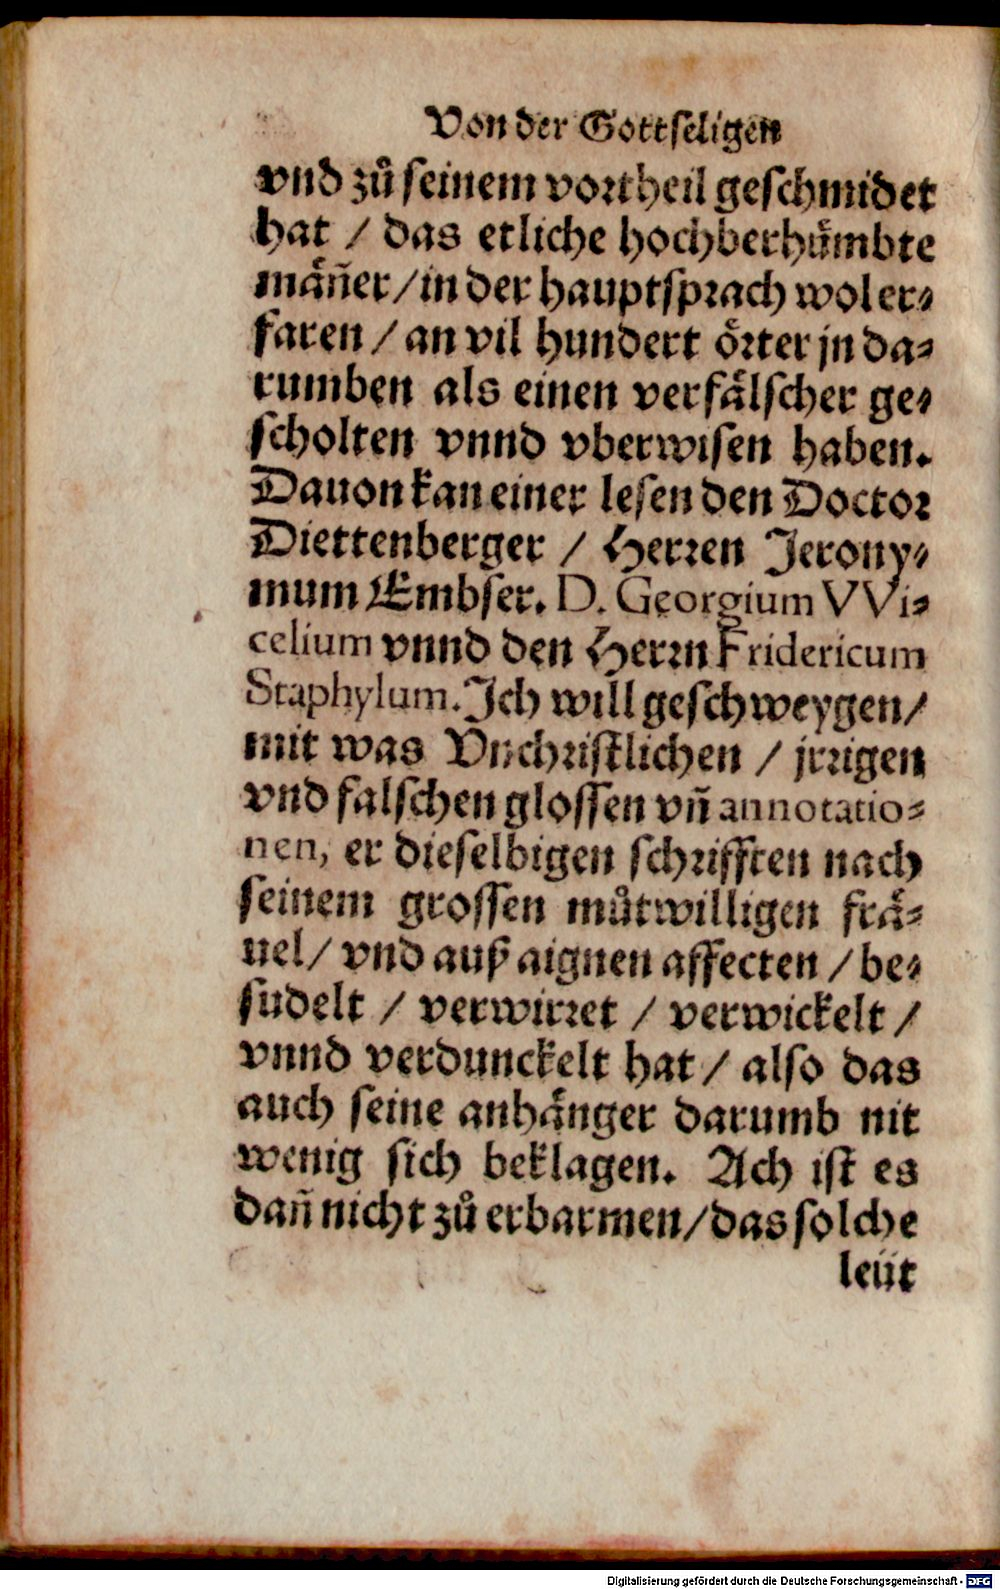 Von der Gottseligen
vnd zů seinem vortheil geschmidet
hat / das etliche hochberhuͤmbte
maͤñer / in der hauptsprach wol er⸗
faren / an vil hundert oͤrter jn da⸗
rumben als einen verfaͤlscher ge⸗
scholten vnnd vberwisen haben.
Dauon kan einer lesen den Doctor
Diettenberger / Herren Jerony⸗
mum Embser. D. Georgium VVi⸗
celium vnnd den Herrn Fridericum
Staphylum. Jch will geschweygen /
mit was Vnchristlichen / jrrigen
vnd falschen glossen vñ annotatio⸗
nen, er dieselbigen schrifften nach
seinem grossen můtwilligen fraͤ⸗
uel / vnd auß aignen affecten / be⸗
sudelt / verwirret / verwickelt /
vnnd verdunckelt hat / also das
auch seine anhaͤnger darumb nit
wenig sich beklagen. Ach ist es
dañ nicht zů erbarmen / das solche
leüt
Digitalisierung gefördert durch die Deutsche Forschungsgemeinschaft - DFG